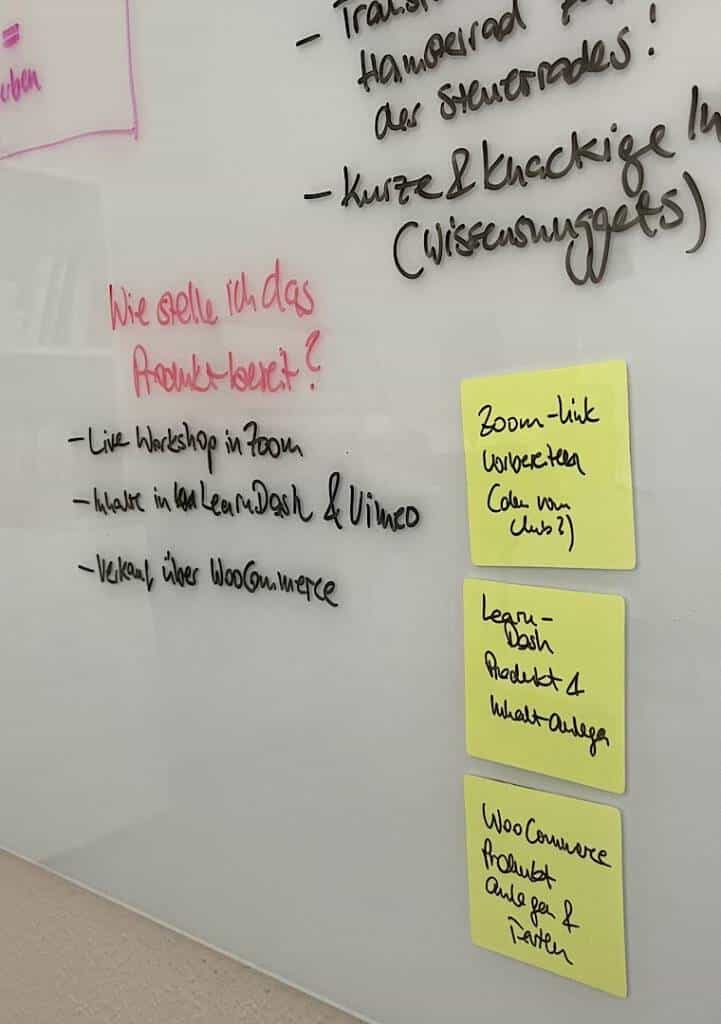 =
- Trans
Hamsterrad
des Steuerrades!
- Kurze & knackige In
(Wissensnuggets)
Wie stelle ich das
Produkt bereit?
- Live Workshop in Zoom
- Inhalte in LearnDash & Vimeo
- Verkauf über WooCommerce
Zoom-Link
vorbereiten
(oder vom
Club?)
Learn-
Dash
Produkt &
Inhalt anlegen
WooCommerce
Produkt
anlegen &
Testen